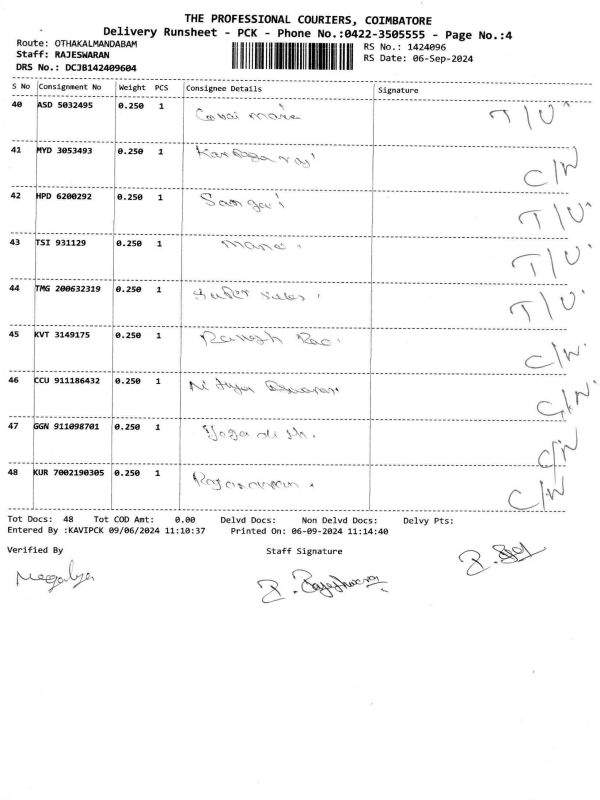 THE PROFESSIONAL COURIERS, COIMBATORE
Delivery Runsheet - PCK - Phone No.:0422-3505555 - Page No.:4
Route: OTHAKALMANDABAM RS No.: 1424096
Staff: RAJESWARAN RS Date: 06-Sep-2024
DRS No.: DCJB142409604
S No Consignment No Weight PCS Consignee Details Signature
40 ASD 5032495 0.250 1 T/U
41 MYD 3053493 0.250 1 C/N
42 HPD 6200292 0.250 1 T/U.
43 TSI 931129 0.250 1 T/U.
44 TMG 200632319 0.250 1 T/U.
45 KVT 3149175 0.250 1 C/N.
46 CCU 911186432 0.250 1 C/N.
47 GGN 911098701 0.250 1 C/N
48 KUR 7002190305 0.250 1 C/N
Tot Docs: 48 Tot COD Amt: 0.00 Delvd Docs: Non Delvd Docs: Delvy Pts:
Entered By :KAVIPCK 09/06/2024 11:10:37 Printed On: 06-09-2024 11:14:40
Verified By Staff Signature